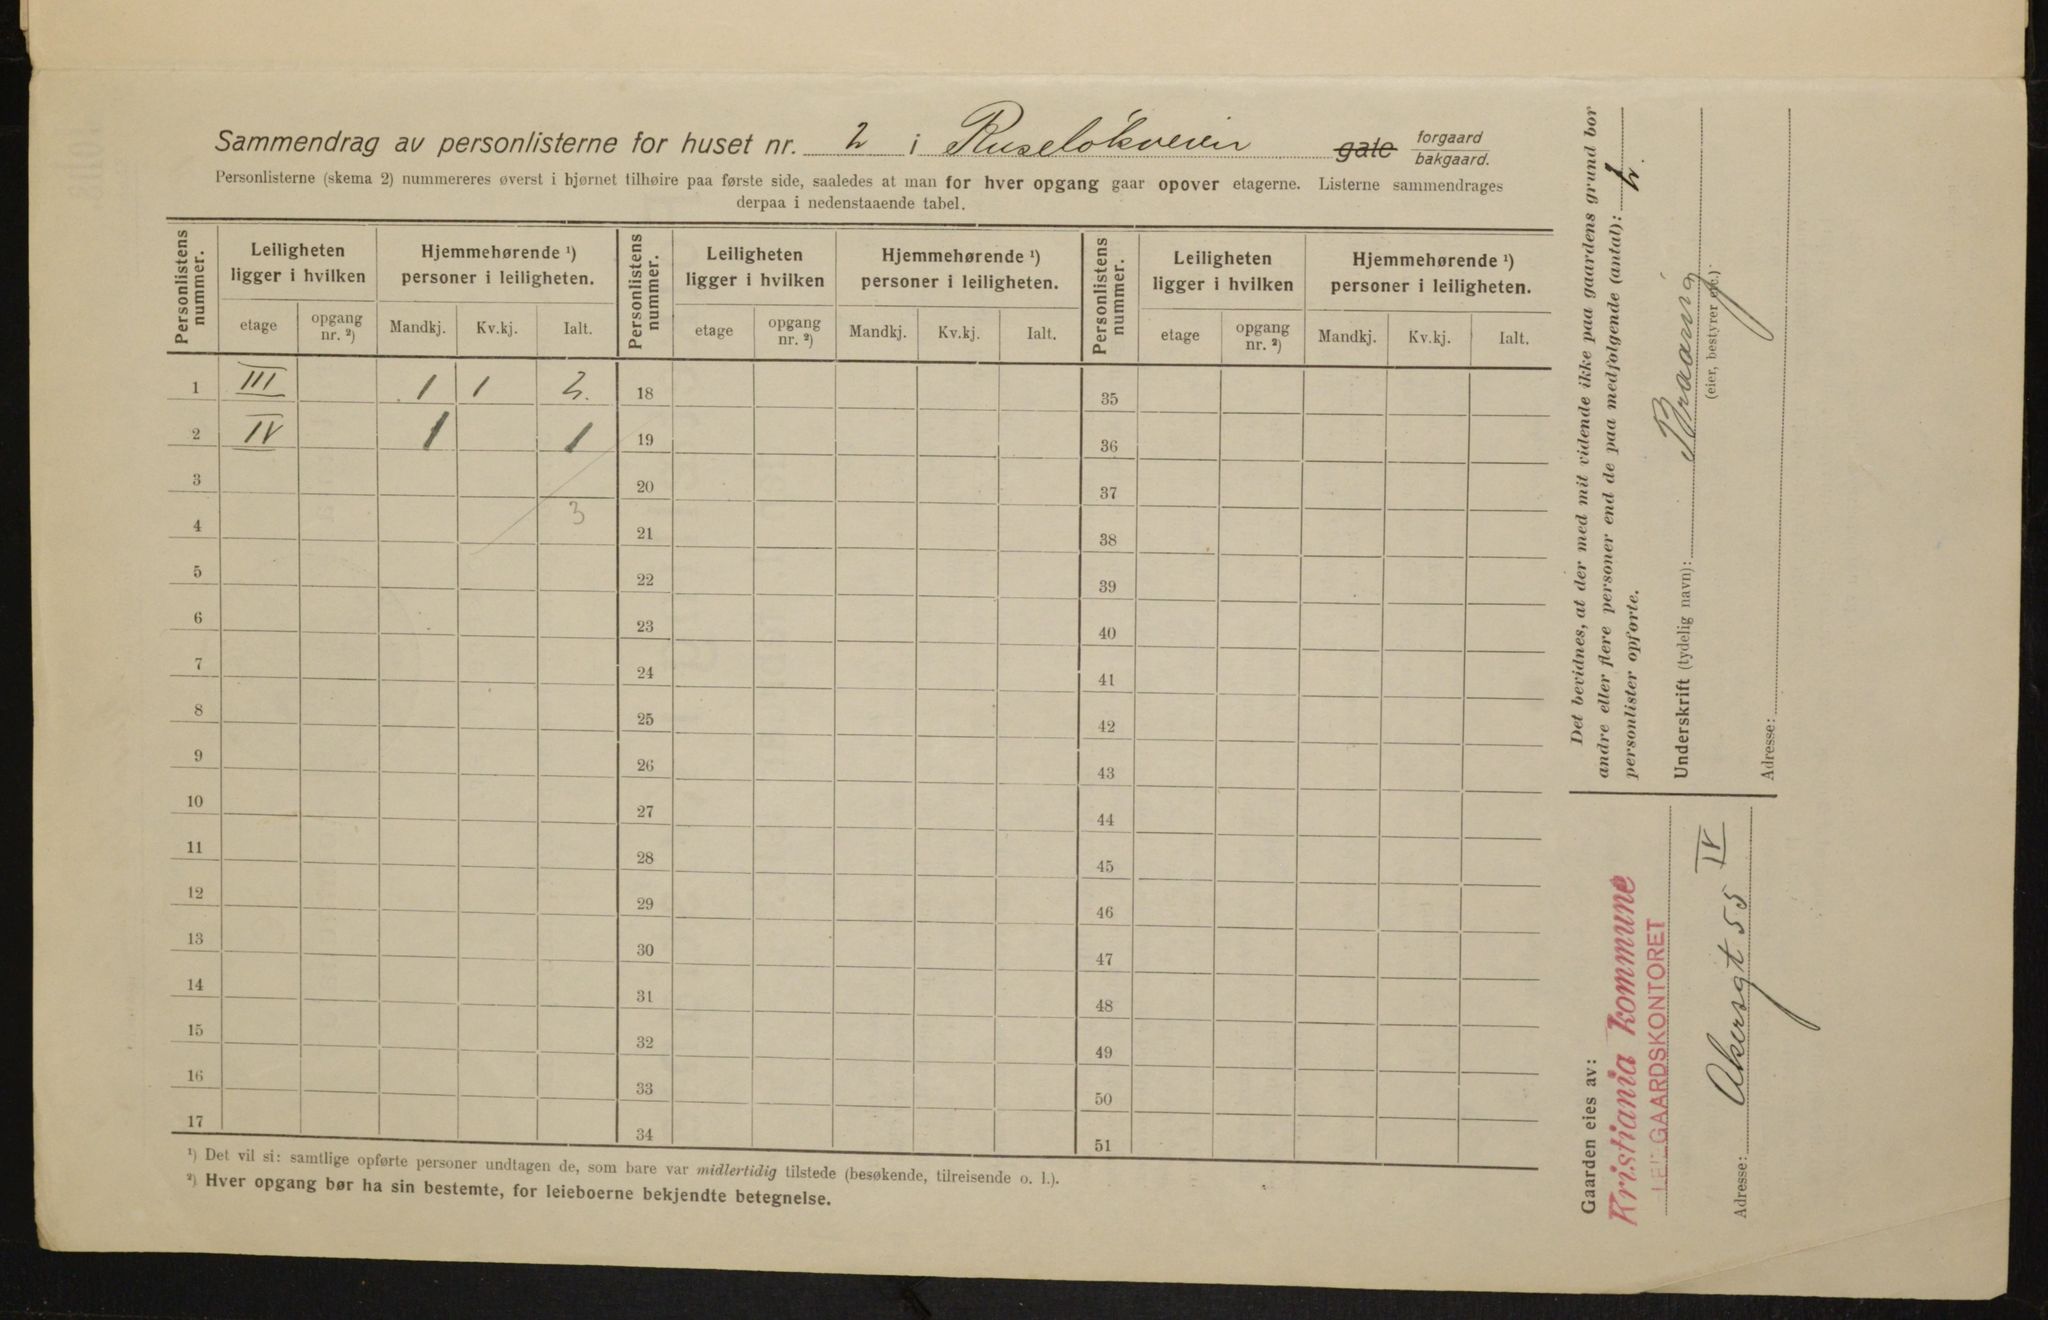 Sammendrag av personlisterne for huset nr. 2 i Ruseløkveien gate forgaard bakgaard.
Personlisterne (skema 2) nummereres øverst i hjørnet tilhøire paa første side, saaledes at man for hver opgang gaar opover etagerne. Listerne sammendrages
derpaa i nedenstaaende tabel.
Personlistens nummer. Leiligheten ligger i hvilken Hjemmehørende ¹) personer i leiligheten. Personlistens nummer. Leiligheten ligger i hvilken Hjemmehørende ¹) personer i leiligheten. Personlistens nummer. Leiligheten ligger i hvilken Hjemmehørende ¹) personer i leiligheten.
etage opgang nr. ²) Mandkj. Kv.kj. Ialt. etage opgang nr. ²) Mandkj. Kv.kj. Ialt. etage opgang nr. ²) Mandkj. Kv.kj. Ialt.
1 III 1 1 2. 18 35
2 IV 1 1 19 36
3 20 37
4 3 21 38
5 22 39
6 23 40
7 24 41
8 25 42
9 26 43
10 27 44
11 28 45
12 29 46
13 30 47
14 31 48
15 32 49
16 33 50
17 34 51
¹) Det vil si: samtlige opførte personer undtagen de, som bare var midlertidig tilstede (besøkende, tilreisende o. l.).
²) Hver opgang bør ha sin bestemte, for leieboerne bekjendte betegnelse.
Det bevidnes, at der med mit vidende ikke paa gaardens grund bor
andre eller flere personer end de paa medfølgende (antal): 2.
personlister opførte.
Underskrift (tydelig navn):
(eier, bestyrer etc.)
Adresse:
Gaarden eies av:
Kristiania kommune
LEIEGAARDSKONTORET
Adresse: Akersgt 55 IV